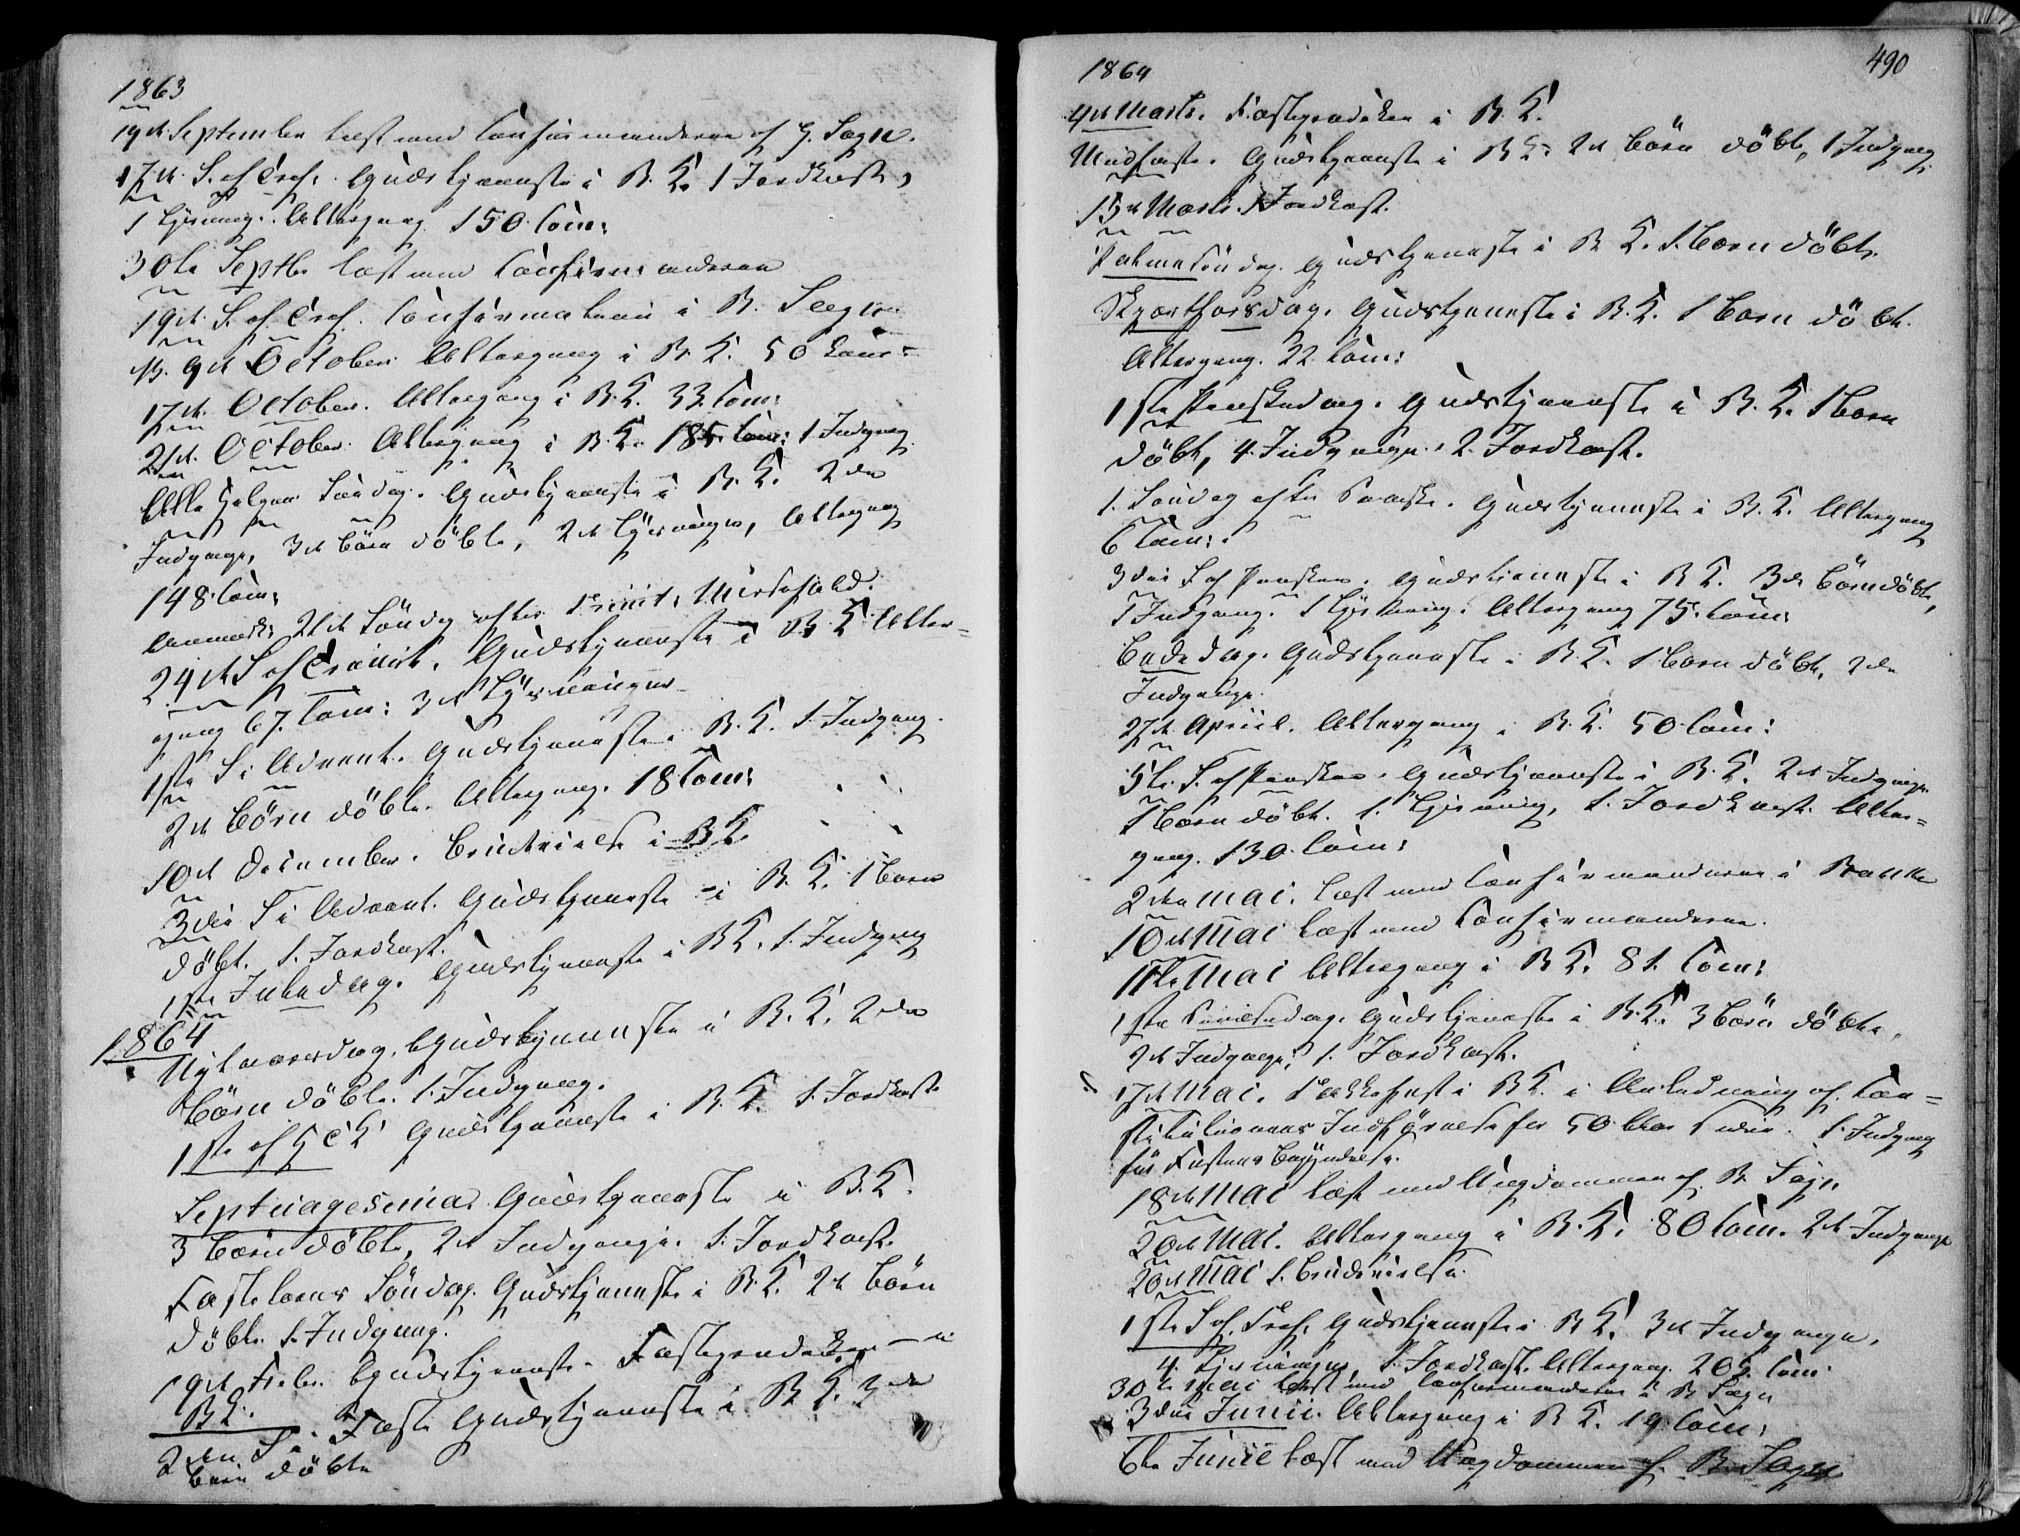 1863
19de September læst med Confirmanderne af H. Sogn.
17de S. ef Tref. Gudstjeneste i B. K. 1 Jordkast,
1 Lysning. Altergang 150 Com:
30te Septbr læst med Confirmanderne
19de S. ef. Tref. Confirmation i B. Sogn
9de October Altergang i B. K. 50 Com:
17de October. Altergang i B. K. 33 Com:
21de October. Altergang i B. K. 185 Com: 1 Indgang
Alle Helgens Søndag. Gudstjeneste i B. K. 2de
Indgange, 3de Børn døbte, 2de Lysninger, Altergang
148 Com:
Anmærk: 21de Søndag efter Trinit. Messefald.
24de S ef Trinit. Gudstjeneste i B K Alter=
gang 67. Com: 3de Lysninger
1ste S. i Advent. Gudstjeneste i B. K. 1. Indgang.
2de Børn døbte. Altergang. 18 Com:
10de December. Brudevielse i B K.
3die S i Advent. Gudstjeneste i B. K. 1 Barn
døbt. 1. Jordkast.
1ste Juledag. Gudstjeneste i B K. 1. Indgang
1864
Nytaarsdag. Gudstjeneste i B. K. 2de
Børn døbte. 1. Indgang.
1ste ef H 3 K Gudstjeneste i B. K. 1. Jordkast
Septuagesima. Gudstjeneste i B. K.
3 Børn døbte, 2de Indgange. 1. Jordkast.
Fastelavns Søndag. Gudstjeneste i B. K. 2de Børn
døbte. 1. Indgang.
19de Febr. Gudstjeneste. Fasteprædiken i
B K.
2den S i Faste Gudstjeneste i B K. 2de
Børn døbte

1864
490
4de Marts. Fasteprædiken i B. K.
Midfaste. Gudstjeneste i B K. 2de Børn døbte, 1 Indgang
15de Marts. 1 Jordkast.
Palmesøndag. Gudstjeneste i B K. 1. Barn døbt.
Skjærthorsdag. Gudstjeneste i B. K. 1 Barn døbt.
Altergang. 22 Com:
1ste Paaskedag. Gudstjeneste i B. K. 1 Barn
døbt, 4. Indgange. 2. Jordkast.
1. Søndag efter Paaske. Gudstjeneste i B. K. Altergang
6 Com:
3die S ef Paaske. Gudstjeneste i B K. 3de Børn døbte,
1 Indgang. 1 Lysning. Altergang 75. Com:
Bededag. Gudstjeneste i B. K. 1 Barn døbt, 2de
Indgange.
27de April. Altergang i B. K. 50 Com:
5te S. ef Paaske. Gudstjeneste i B. K. 2de Indgange
1 Barn døbt. 1. Lysning, 1. Jordkast. Alter=
gang. 130. Com:
2den Mai. læst med Confirmanderne i
10de Mai læst med Confirmanderne.
11te Mai Altergang i B K. 81. Com:
1ste Pinsedag. Gudstjeneste i B. K. 3 Børn døbte,
2de Indgange, 1. Jordkast.
17de Mai. Takkefest i B K. i Anledning af Con=
stitutionens Indførelse for 50 Aar siden. 1. Indgang
før Festens Begyndelse.
18de Mai læst med Ungdommen af B. Sogn
20de Mai. Altergang i B. K. 80 Com. 2de Indgange
20de Mai 1. Brudevielse.
1ste S ef. Tref. Gudstjeneste i B K. 3de Indgange,
4. Lysninger, 1. Jordkast. Altergang. 205 Com.
30te Mai læst med Confirmanderne i B Sogn
3die Junii. Altergang i B K. 19 Com:
6te Junii læst med Ungdommen af B. Sogn